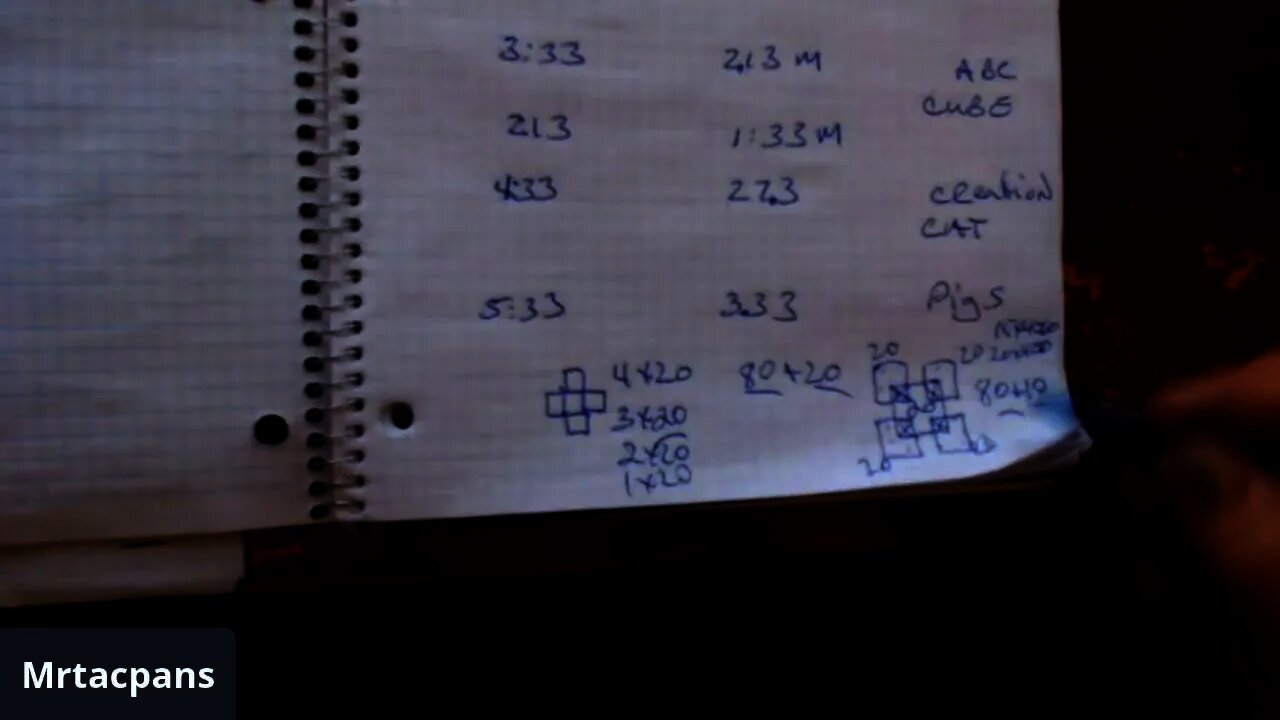 3:33 2.13 M ABC
CUBE
213 1:33 M
4:33 27.3 creation
CAT
5:33 3.33 Pigs
20 20
4x20 80+20
3x20
2x20
1x20
20
Mrtacpans